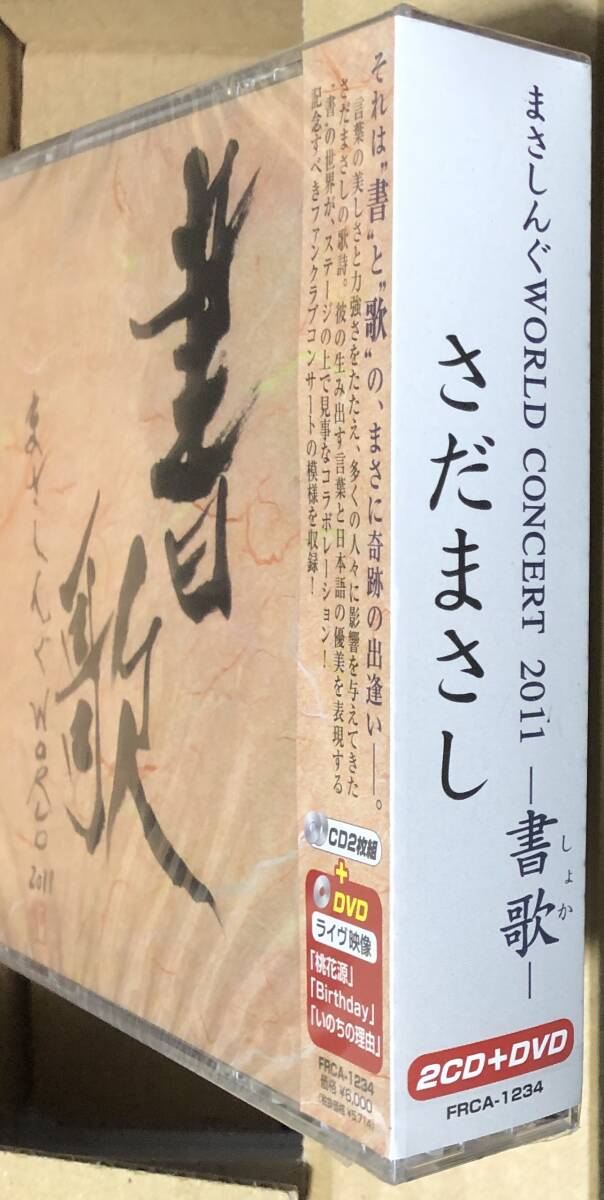 まさしんぐWORLD CONCERT 2011 ―書歌―
しょか
さだまさし
2CD+DVD
FRCA-1234
それは"書"と"歌"の、まさに奇跡の出逢い――。
言葉の美しさと力強さをたたえ、多くの人々に影響を与えてきた
さだまさしの歌詩。彼の生み出す言葉と日本語の優美を表現する
"書"の世界が、ステージの上で見事なコラボレーション!
記念すべきファンクラブコンサートの模様を収録!
CD2枚組
+
DVD
ライヴ映像
「桃花源」
「Birthday」
「いのちの理由」
FRCA-1234
価格 ¥6,000
(税抜価格 ¥5,714)
書歌
まさしんぐWORLD
2011